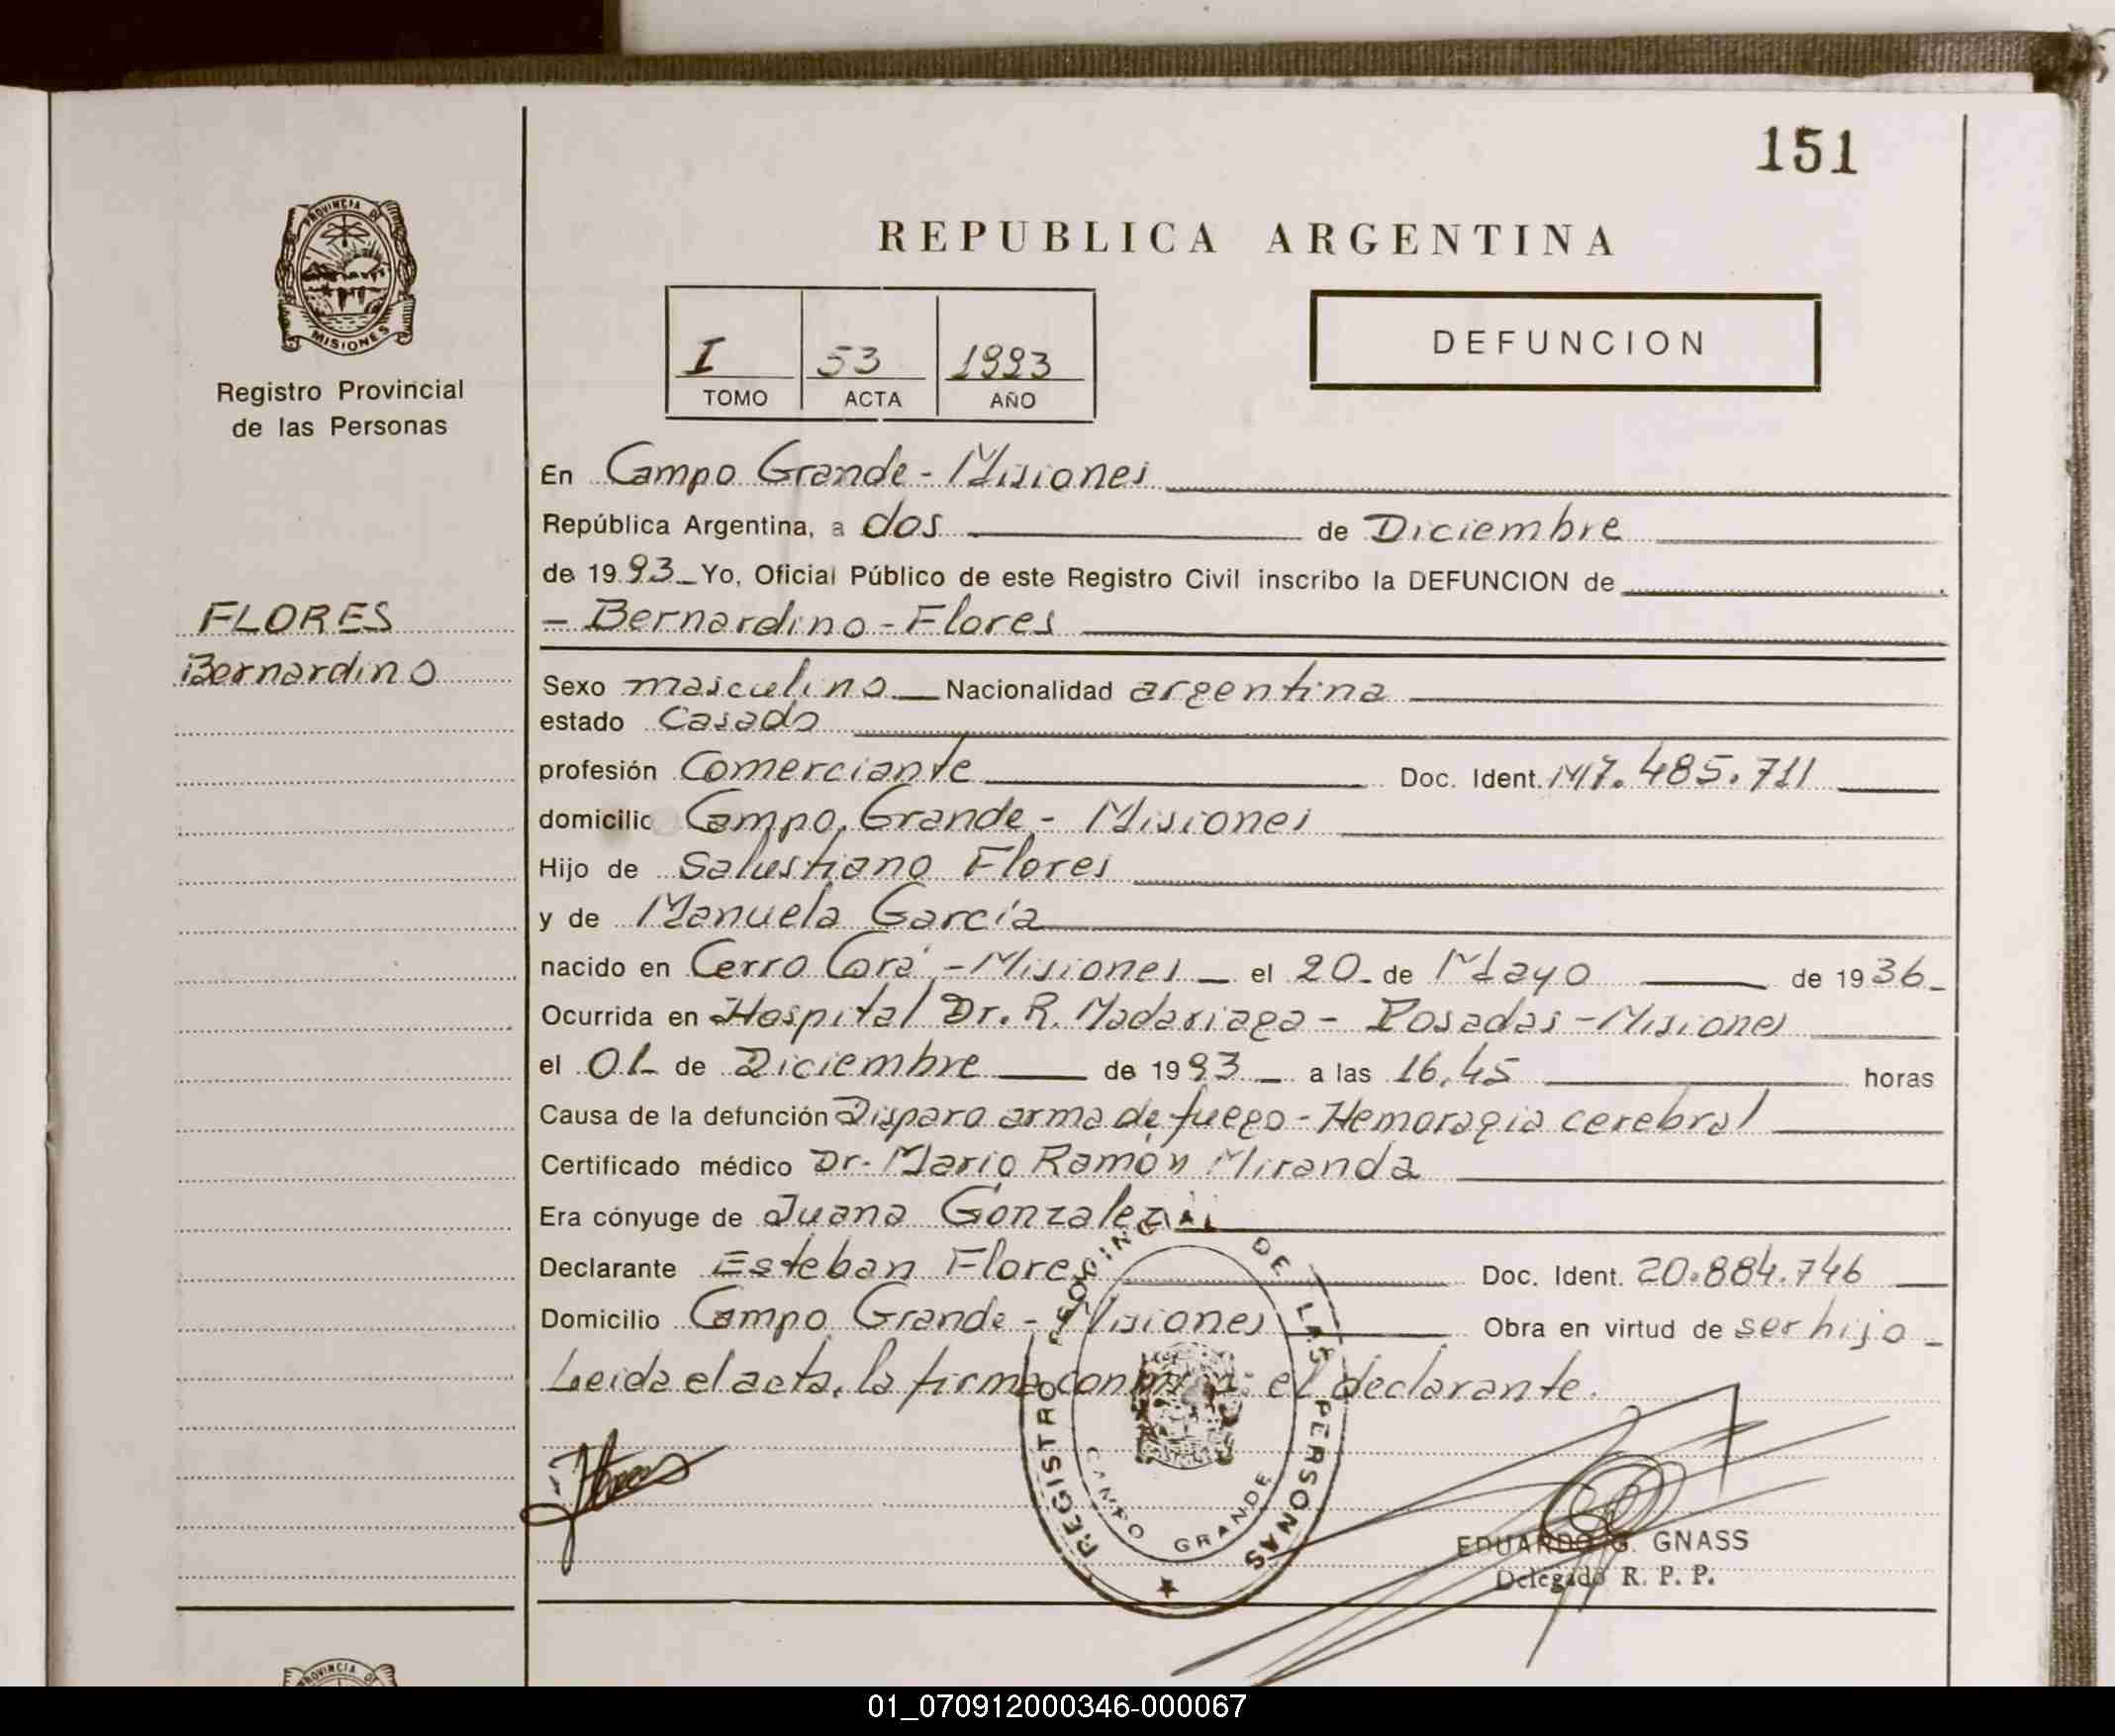 151
PROVINCIA DE
MISIONES
Registro Provincial
de las Personas
REPUBLICA ARGENTINA
I 53 1993
TOMO ACTA AÑO
DEFUNCION
En Campo Grande - Misiones
República Argentina, a dos de Diciembre
de 19 93 Yo, Oficial Público de este Registro Civil inscribo la DEFUNCION de
FLORES
Bernardino
- Bernardino - Flores
Sexo masculino Nacionalidad argentina
estado Casado
profesión Comerciante Doc. Ident. M7.485.711
domicilio Campo Grande - Misiones
Hijo de Salustiano Flores
y de Manuela García
nacido en Cerro Corá - Misiones el 20 de Mayo de 19 36
Ocurrida en Hospital Dr. R. Madariaga - Posadas - Misiones
el 01 de Diciembre de 19 93 a las 16,45 horas
Causa de la defunción Disparo arma de fuego - Hemoragia cerebral
Certificado médico Dr. Mario Ramón Miranda
Era cónyuge de Juana Gonzalez
Declarante Esteban Flores Doc. Ident. 20.884.746
Domicilio Campo Grande - Misiones Obra en virtud de ser hijo
Leida el acta, la firma conmigo: el declarante.
REGISTRO PROVINCIAL DE LAS PERSONAS
CAMPO GRANDE
EDUARDO G. GNASS
Delegado R. P. P.
PROVINCIA D
01_070912000346-000067